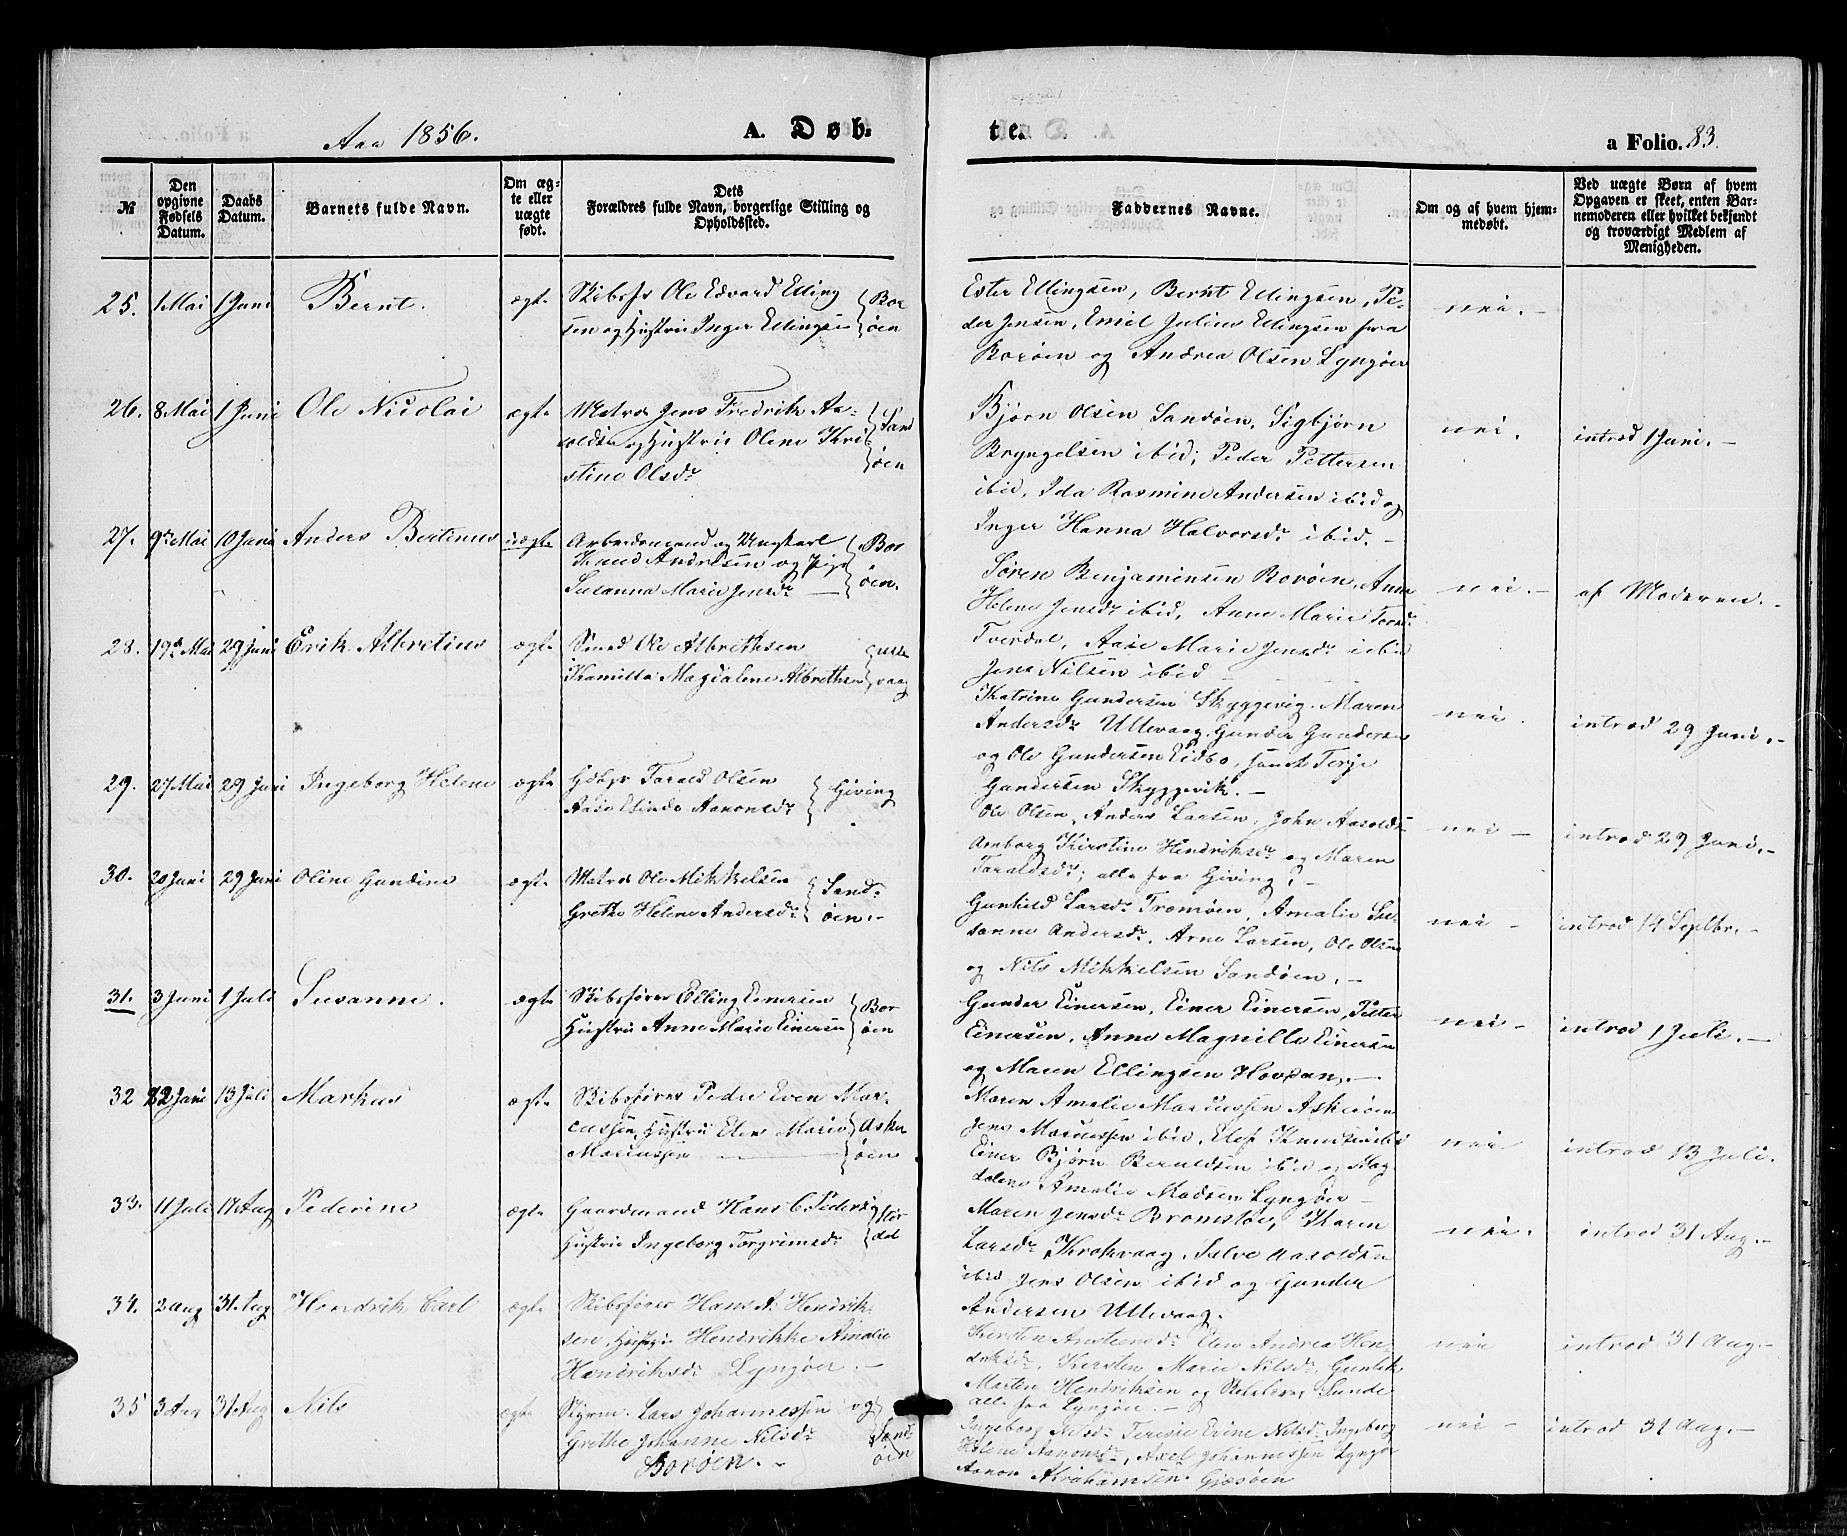 Aaa 1856.
A. Døb-
te.
a Folio. 83.
№
Den opgivne Fødsels Datum.
Daabs Datum.
Barnets fulde Navn.
Om ægte eller uægte født.
Dets Forældres fulde Navn, borgerlige Stilling og Opholdssted.
Faddernes Navne.
Om og af hvem hjemmedøbt.
Ved uægte Børn af hvem Opgaven er skeet, enten Barnemoderen eller hvilket bekjendt og troværdigt Medlem af Menigheden.
25. 1 Mai 1 Juni Bernt. ægte
Skibsfr Ole Edvard Elling
sen og Hustrue Inger Ellingsen
Bor
øen
Ester Ellingsen, Bernt Ellingsen, Pe-
der Jensen, Emil Julius Ellingsen fra
Borøen og Andrea Olsen Lyngøer
nei. -
26. 8 Mai 1 Juni Ole Nicolai ægte
Matros Jens Fredrik Aa-
soldsen og Hustrue Olene Kri-
stine Olsdr
Sand
øen
Bjørn Olsen Sandøen, Sigbjørn
Bryngelsen ibid; Peder Pettersen
ibid, Ida Rasmine Andersen ibid og
Inger Hanna Halvorsdr ibid. -
nei. introd 1 Juni. -
27. 9de Mai 10 Juni Anders Bertinus uægte
Arbeidsmand og Ungkarl
Knud Andersen og Pige
Susanna Marie Jensdr
Bor
øen.
Søren Benjaminsen Borøen, Anne
Helene Jensdr ibid, Anne Marie
Tverdal, Aase Marie Jensdr ibid
Jens Nilsen ibid
nei. - af Moderen. -
28. 19de Mai 29 Juni Erik Albretius ægte
Smed Ole Albrethsen
Kamilla Magdalene Albrethsen
Ulle
vaag
Katrine Gundersen Skyggevig. Maren
Andersdr Ullevaag. Gunder Gundersen
og Ole Gundersen Eidbo, samt Terje
Gundersen Skyggevik. -
nei. introd 29 Juni. -
29. 27 Mai 29 Juni Ingeborg Helene ægte
Gdbgr Tarald Olsen
Aase Elinde Aanonsdr
Giving
Ole Olsen, Anders Larsen, John Aasolds
Amborg Kirstine Hendriksdr og Maren
Taraldsdr; alle fra Giving; -
nei - introd 29 Juni. -
30. 20 Juni 29 Juni Oline Gundine ægte
Matros Ole Mikkelsen
Grethe Helene Andersdr
Sand-
øen. -
Gunhild Larsdr Tromøen, Amalie Su-
sanne Andersdr, Arne Larsen, Ole Olsen
og Nils Mikkelsen Sandøen. -
nei - introd 14 Septbr. -
31. 3 Juni 1 Juli Susanne. ægte
Skibsfører Elling Einersen
Hustrue Anne Marie Einersen
Bor
øen
Gunder Einersen, Einer Einersen, Petter
Einersen, Anne Magnille Einersen
og Maren Ellingsen Hovdan. -
nei - introd 1 Juli. -
32 22 Juni 13 Juli Markus ægte
Skibsfører Peder Even Mar-
cussen, Hustru Elen Marie
Marcussen
Aske
øen
Maren Amalie Marcussen Askerøen
Jens Marcussen ibid, Elef Knudsen ibid
Einer Bjørn Berntdsen ibid og Mag
dalene Amalie Madsen Lyngøer -
nei introd 13 Juli.
33. 11 Juli 17 Aug Pederine ægte
Gaardmand Hans C. Peders
Hustrue Ingeborg Torgrimsdr
dal
Maren Jensdr Bromstøe, Karen
Larsdr Krokvaag, Salve Aasoldsen
ibid Jens Olsen ibid og Gunder
Andersen Ullevaag.
nei. introd 31 Aug. -
34. 2 Aug 31. Aug Hendrik Carl ægte
Skibsfører Hans A. Hendrik-
sen, Hustrue Hendrikke Amalie
Hendriksdr Lyngøer. -
Kirsten Elen Andrea Hen-
driksdr, Kersten Marie Nilsdr, Gunlik
Martin Hendriksen og Sunde
alle fra Lyngøer. -
nei introd 31 Aug. -
35 3 Aug 31 Aug Nils ægte
Styrm. Lars Johannessen og
Grethe Johanne Nilsdr
Borøen. -
Sand-
øen
Ingeborg Nilsdr Teresie Erine Nilsdr. Ingeborg
Helene Aanonsdr, Axel Johannessen Lyngør
Aanon Abrahamsen. Gjesøen
nei - introd 31 Aug. -